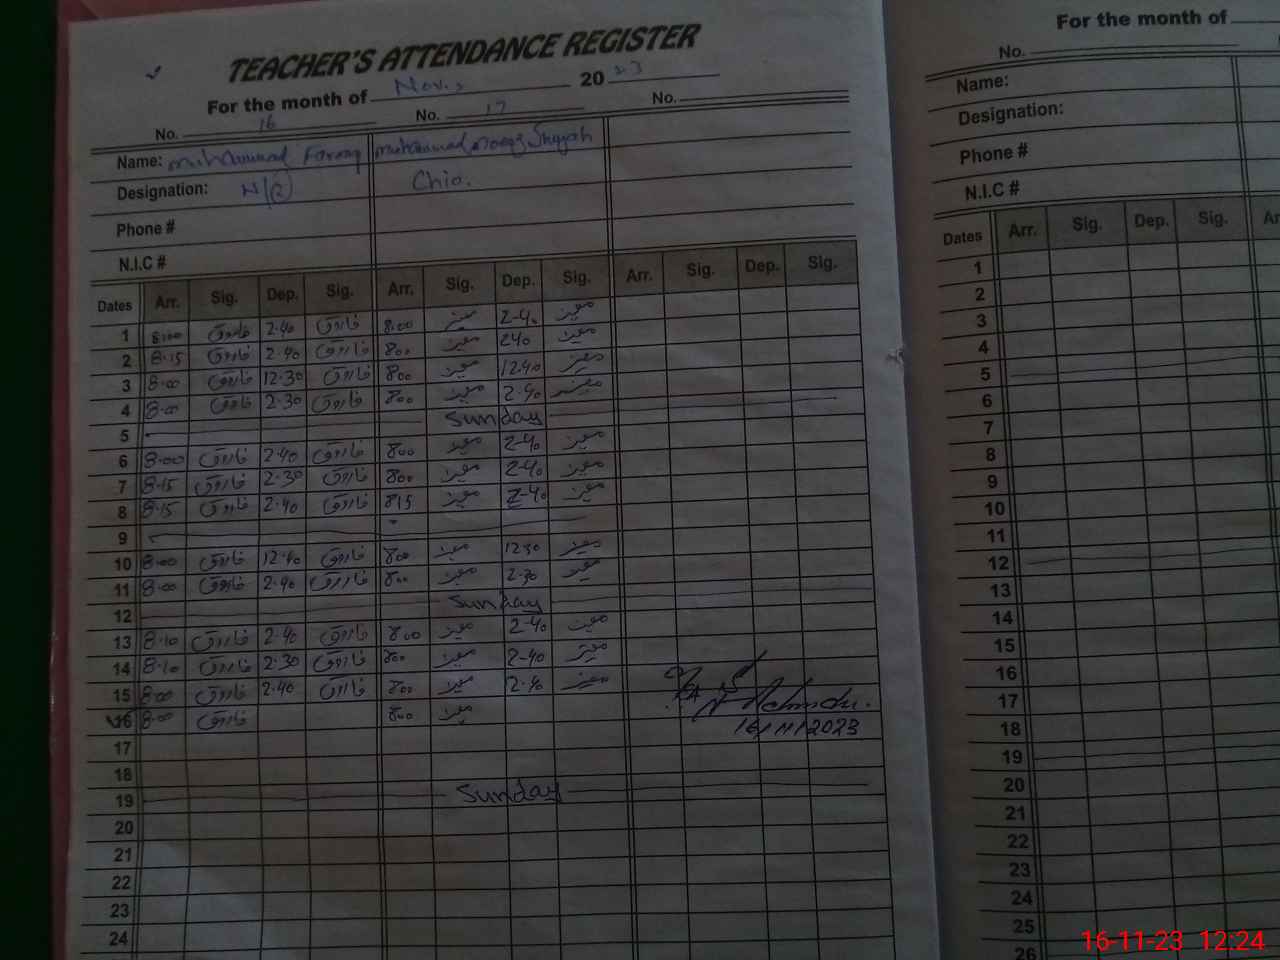 TEACHER'S ATTENDANCE REGISTER
For the month of Nov, 2023
No. 16 No. 17 No.
Name: Muhammad Farooq Muhammad
Designation: N/Q
Phone #
N.I.C #
Dates Arr. Sig. Dep. Sig. Arr. Sig. Dep. Sig. Arr. Sig. Dep. Sig.
1 8:00 فاروق 2-40 فاروق 8:00 معیز 2-40 معیز
2 8-15 فاروق 2-40 فاروق 800 معیز 240 معیز
3 8-00 فاروق 12-30 فاروق 800 معیز 1240 معیز
4 8-00 فاروق 2-30 فاروق 800 معیز 2-40 معیز
5 Sunday
6 8-00 فاروق 2-40 فاروق 800 معیز 2-40 معیز
7 8-15 فاروق 2-30 فاروق 800 معیز 2-40 معیز
8 8-15 فاروق 2-40 فاروق 815 معیز 2-40 معیز
9
10 8-00 فاروق 12-40 فاروق 800 معیز 1230 معیز
11 8-00 فاروق 2-40 فاروق 800 معیز 2-30 معیز
12 Sunday
13 8-10 فاروق 2-40 فاروق 800 معیز 2-40 معیز
14 8-10 فاروق 2-30 فاروق 800 معیز 2-40 معیز
15 8-00 فاروق 2-40 فاروق 800 معیز 2-40 معیز
16 8-00 فاروق 800 معیز
16/11/2023
17
18
19 Sunday
20
21
22
23
24
For the month of
No.
Name:
Designation:
Phone #
N.I.C #
Dates Arr. Sig. Dep. Sig.
1
2
3
4
5
6
7
8
9
10
11
12
13
14
15
16
17
18
19
20
21
22
23
24
25
26
16-11-23 12:24